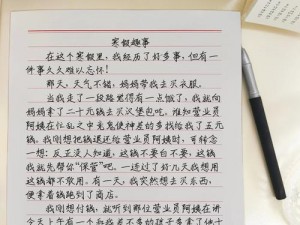 寒假趣事
在这个寒假里，我经历了好多事，但有一
件事久久难以忘怀！
那天，天气不错，妈妈带我去买衣服。
当我走了一段路觉得有一点饿了，我就向
妈妈拿了二十元钱去买汉堡包吧。谁知营业员
阿姨在忙乱之中鬼使神差的多找给我了五元
钱。我刚想把钱退还给营业员阿姨时，可转念
一想：反正没人知道，这钱不要白不要，这钱
我就先帮你“保管”吧。一连过了好几天我想用
这钱都不敢用。有一天，我突然想去买东西，
便拿着钱跑到了商店。
我刚想付钱，就听到那位营业员阿姨在讲